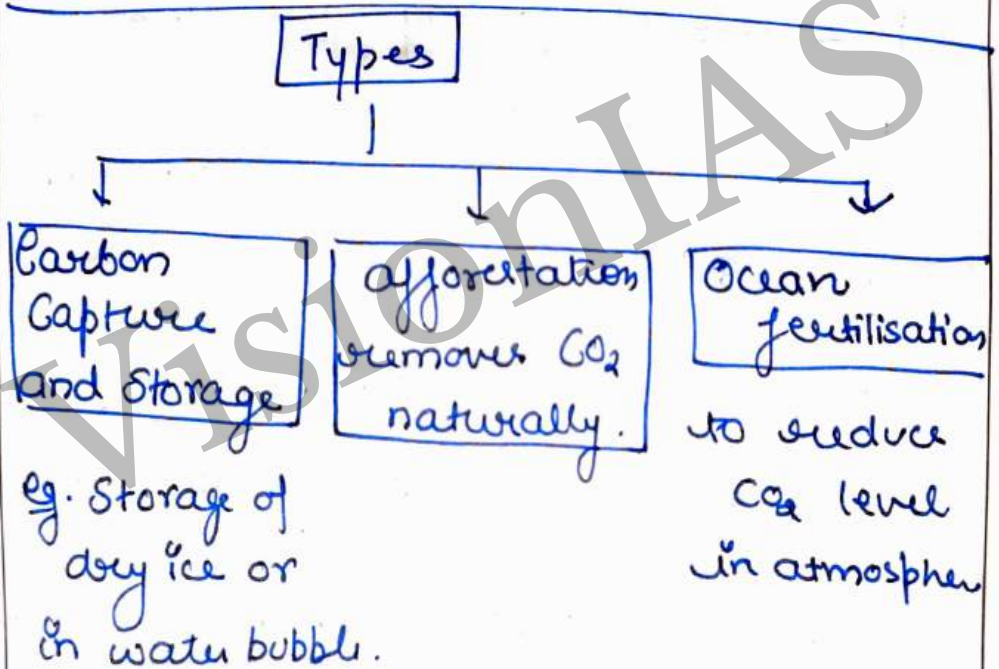 Types
Carbon
Capture
and Storage
eg. Storage of
dry ice or
in water bubble.
afforestation
removes CO₂
naturally.
Ocean
fertilisation
to reduce
CO₂ level
in atmospher
VisionIAS